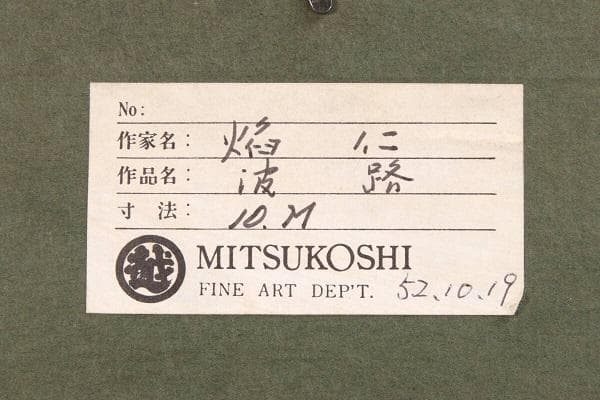 No:
作家名: 焔 仁
作品名: 波 路
寸 法: 10.M
越 MITSUKOSHI
FINE ART DEP'T. 52.10.19